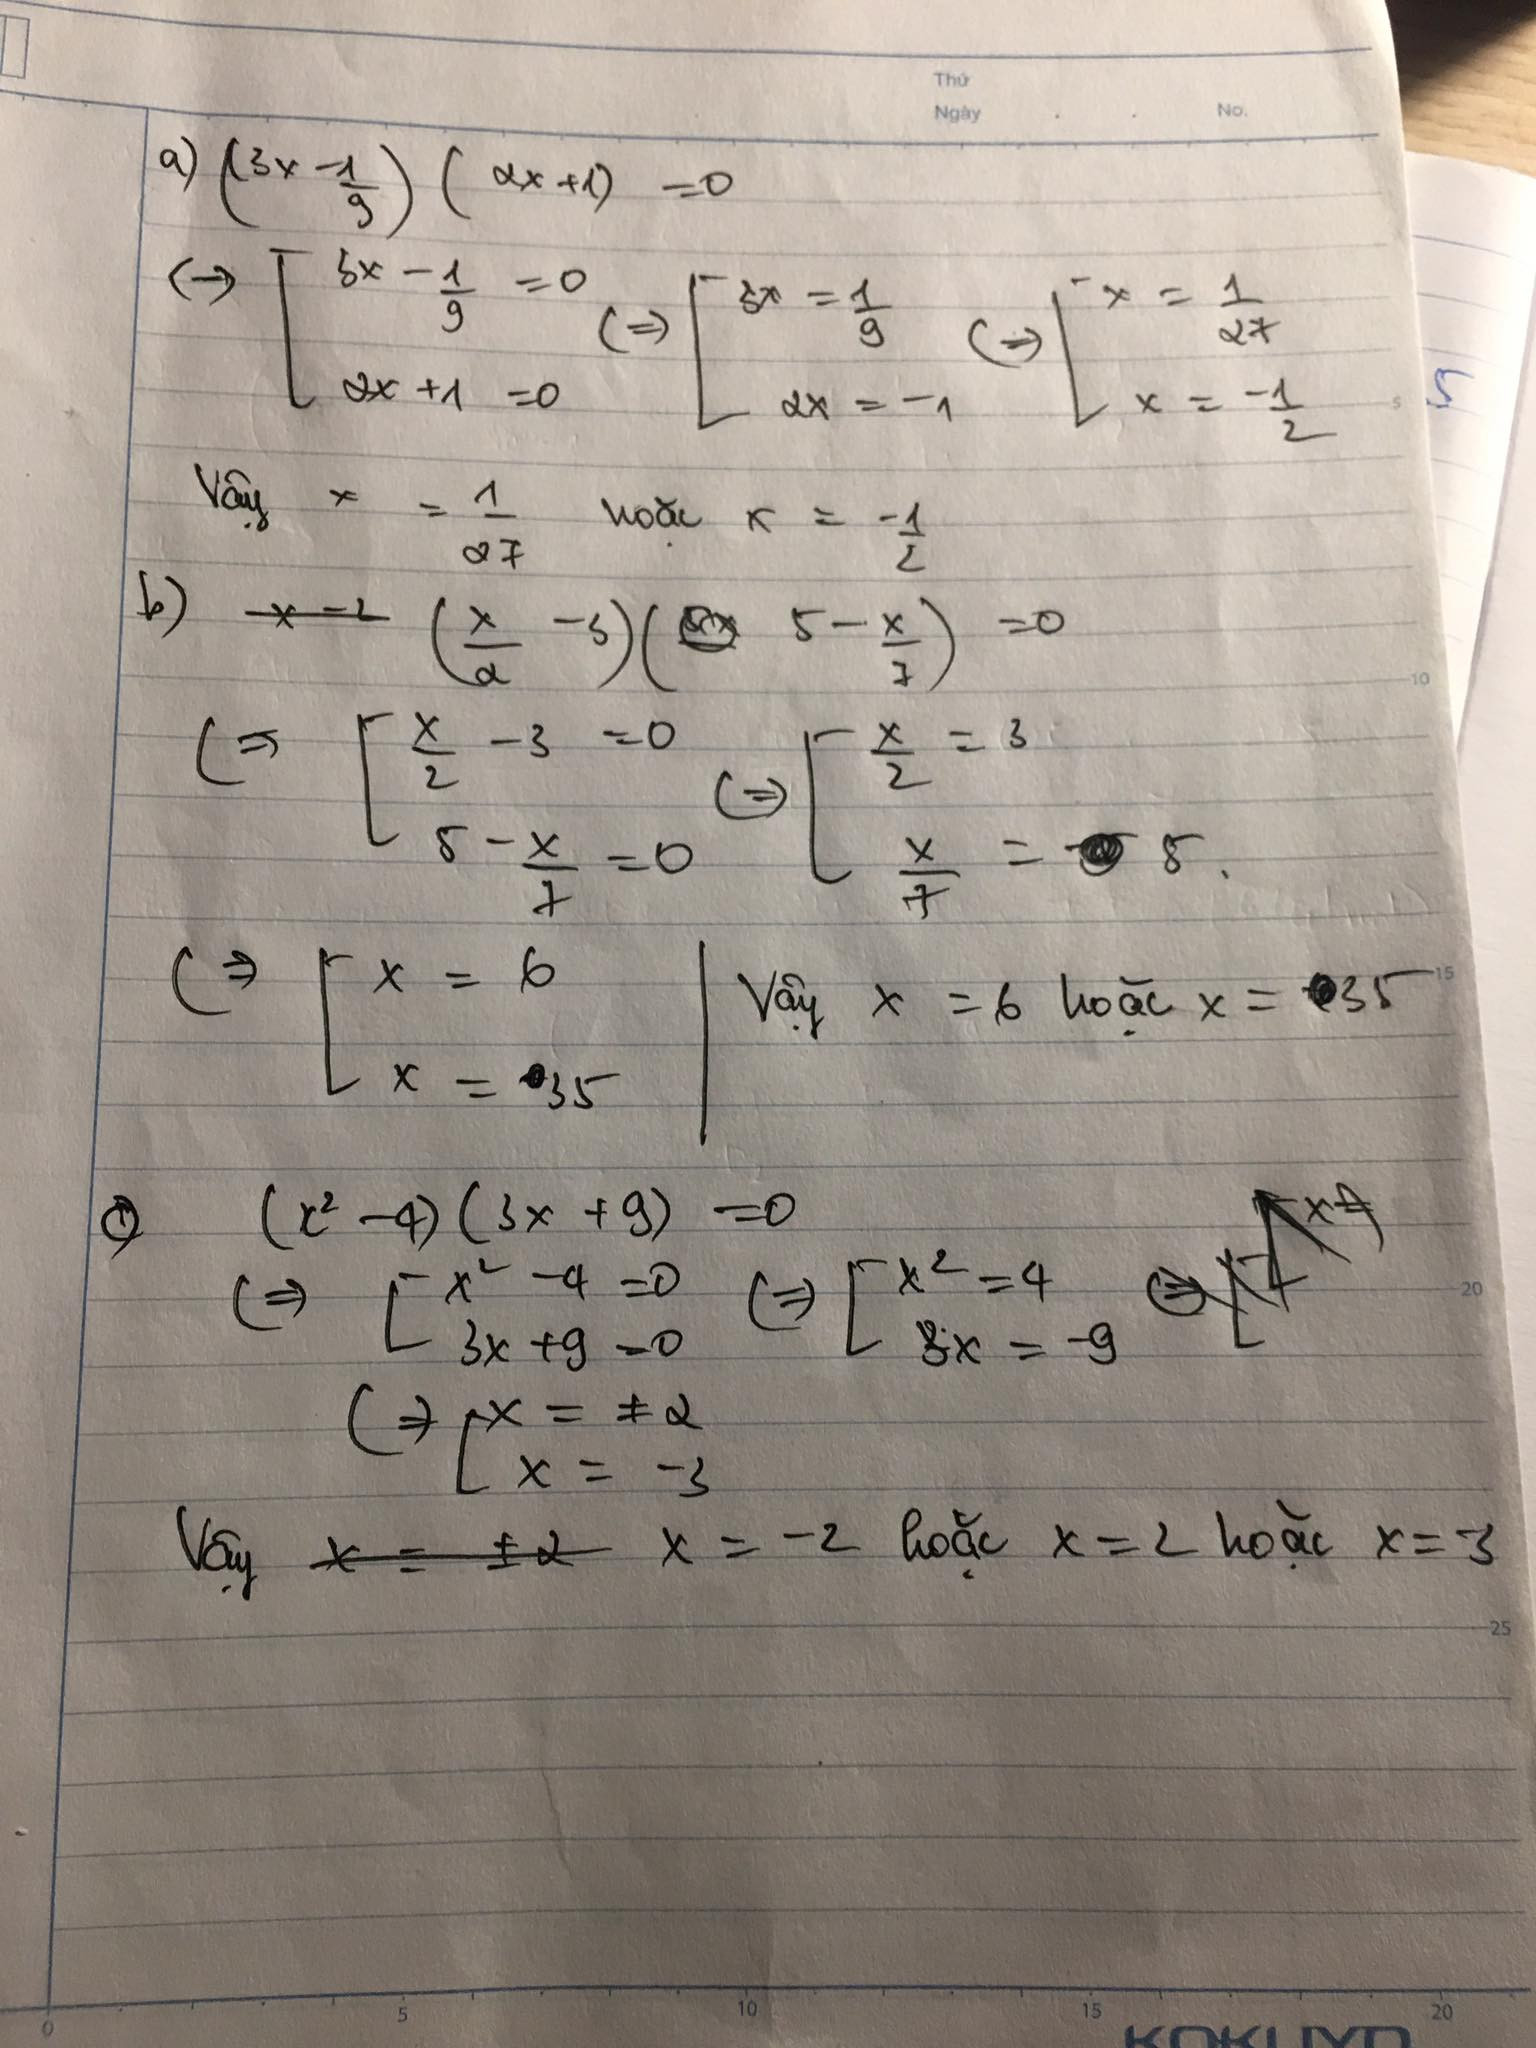 Thứ
Ngày . . No.
a) (3x - 1/9) (2x + 1) = 0
(=> [ 3x - 1/9 = 0 (=> [ 3x = 1/9 (=> [ x = 1/27
2x + 1 = 0 2x = -1 x = -1/2
Vậy x = 1/27 hoặc x = -1/2
b) x - 2 (x/2 - 3)( 5 - x/7 ) = 0
(=> [ x/2 - 3 = 0 (=> [ x/2 = 3
5 - x/7 = 0 x/7 = 5.
(=> [ x = 6 | Vậy x = 6 hoặc x = 35
x = 35
(x² - 4)(3x + 9) = 0
(=> [ x² - 4 = 0 (=> [ x² = 4 (=> [ x =
3x + 9 = 0 3x = -9
(=> [ x = ±2
x = -3
Vậy x = ±2 x = -2 hoặc x = 2 hoặc x = -3
5
5
10
15
20
25
0 5 10 15 20
KOKUYO